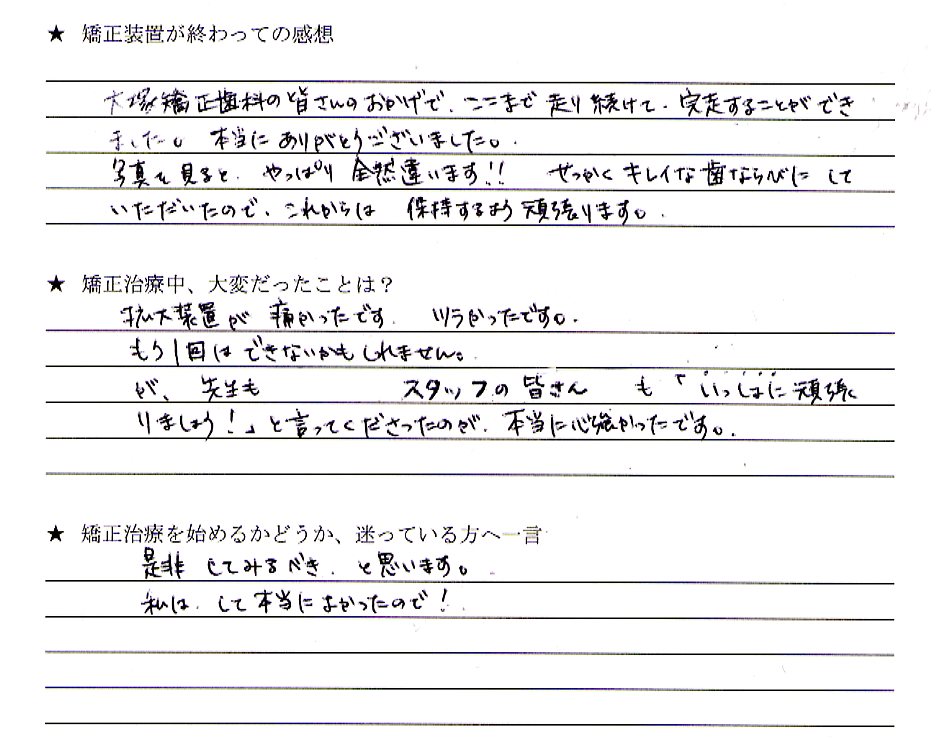 ★ 矯正装置が終わっての感想
大塚矯正歯科の皆さんのおかげで、ここまで走り続けて、完走することができ
ました。本当にありがとうございました。
写真を見ると、やっぱり全然違います!! せっかくキレイな歯ならびにして
いただいたので、これからは保持するよう頑張ります。
★ 矯正治療中、大変だったことは?
拡大装置が痛かったです。ツラかったです。
もう1回はできないかもしれません。
が、先生も スタッフの皆さん も「いっしょに頑張
りましょう!」と言ってくださったのが、本当に心強かったです。
★ 矯正治療を始めるかどうか、迷っている方へ一言
是非してみるべき、と思います。
私は、して本当によかったので!